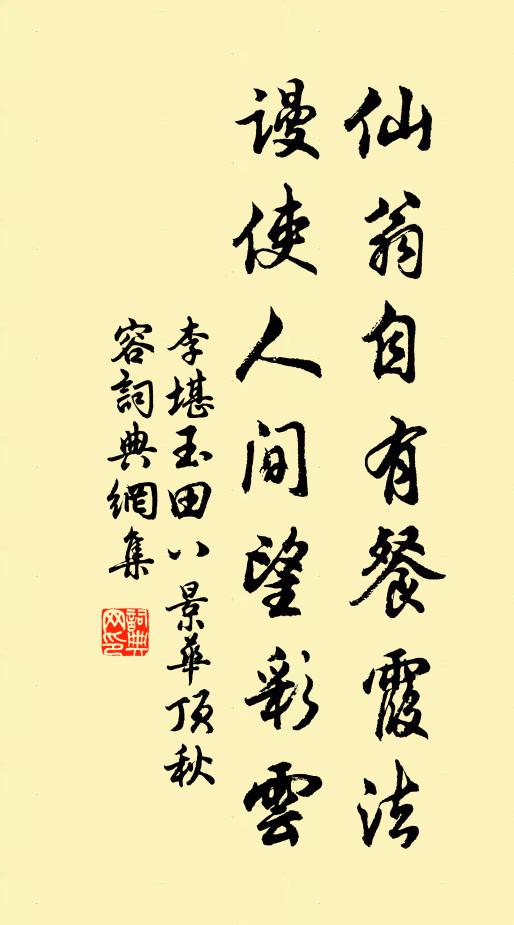 仙翁自有餐霞法
谩使人间望彩雲
李堪玉田八景華顶秋
容詞典網集
詞典
网印